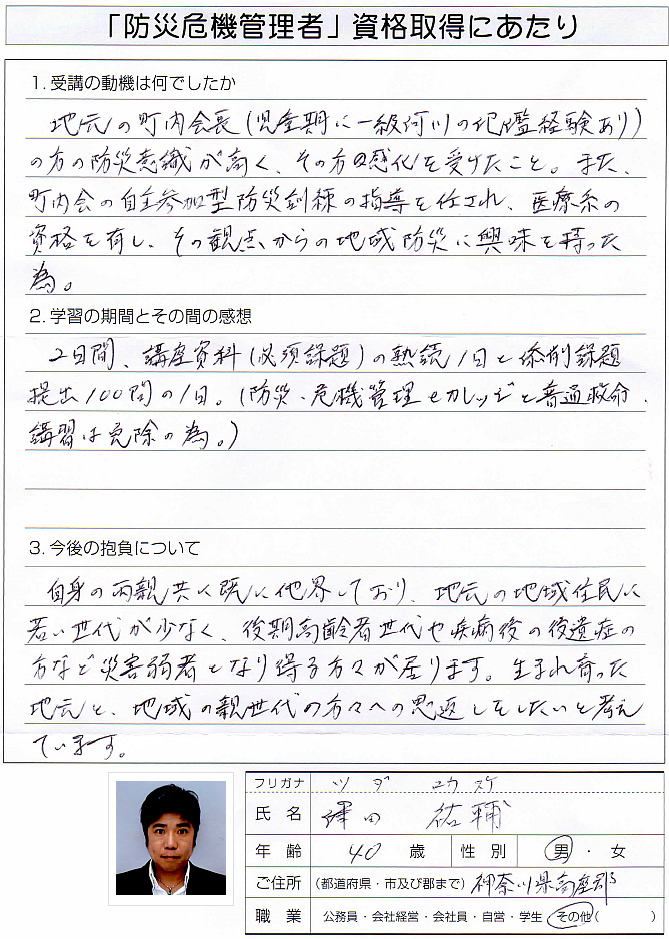 「防災危機管理者」資格取得にあたり
1. 受講の動機は何でしたか
地元の町内会長(児童期に一級河川の氾濫経験あり)
の方の防災意識が高く、その方の感化を受けたこと。また、
町内会の自主参加型防災訓練の指導を任され、医療系の
資格を有し、その観点からの地域防災に興味を持った
為。
2. 学習の期間とその間の感想
2日間、講座資料(必須課題)の熟読1日と添削課題
提出100問の1日。(防災・危機管理eカレッジと普通救命
講習は免除の為。)
3. 今後の抱負について
自身の両親共に既に他界しており、地元の地域住民に
若い世代が少なく、後期高齢者世代や疾病後の後遺症の
方など災害弱者となり得る方々が居ります。生まれ育った
地元と、地域の親世代の方々への恩返しをしたいと考え
ています。
フリガナ ツダ ユウスケ
氏名 津田 祐輔
年齢 40 歳 性別 男・女
ご住所 (都道府県・市及び郡まで) 神奈川県高座郡
職業 公務員・会社経営・会社員・自営・学生・その他( )